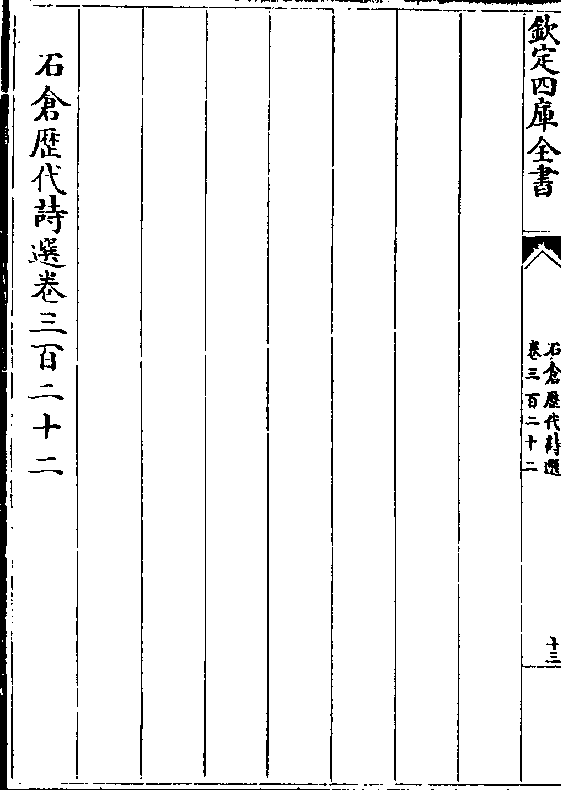 欽定四庫全書
石倉歴代詩選
卷三百二十二
十三
石倉歴代詩選卷三百二十二